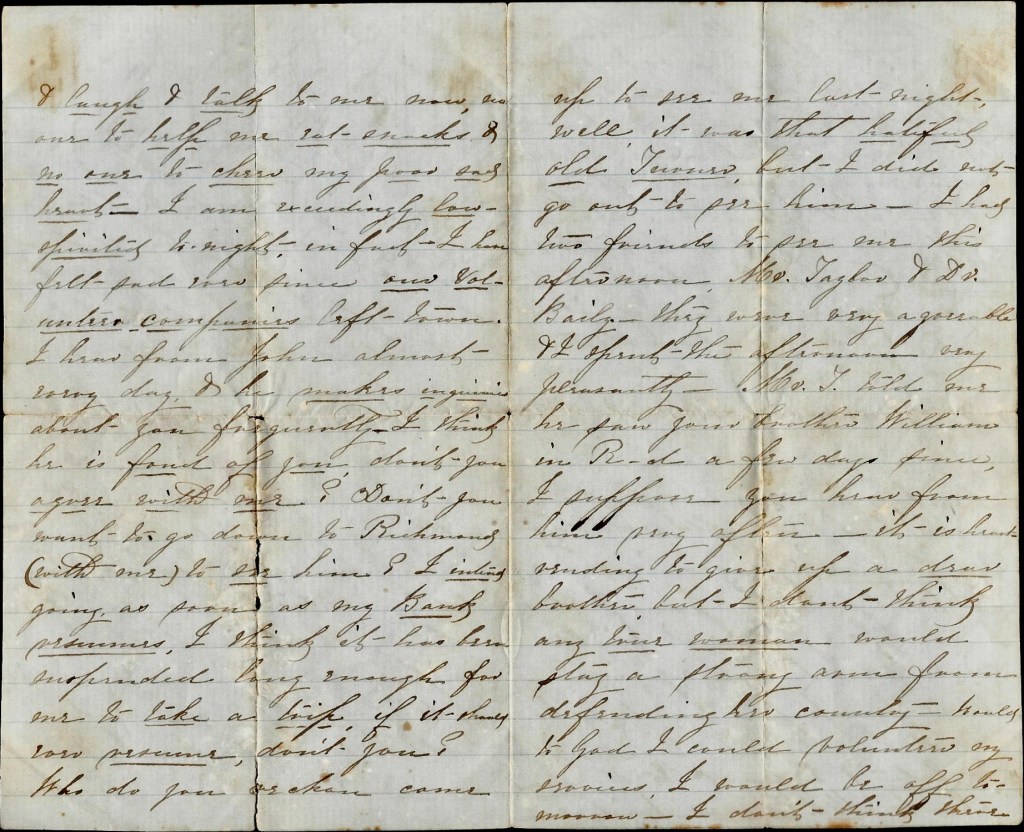 & laugh & talk to me now, no
one to help me eat snacks &
no one to cheer my poor sad
heart — I am exceedingly low-
spirited to-night, in fact I have
felt sad ever since our Vol-
unteer companies left town.
I hear from John almost
every day, & he makes inquiries
about you frequently — I think
he is fond of you, don't you
agree with me? Don't you
want to go down to Richmond
(with me) to see him? I intend
going, as soon as my Bank
resumes, I think it has been
suspended long enough for
me to take a trip, if it should
ever resume, don't you?
Who do you reckon came
up to see me last night,
well, it was that hateful
old Turner, but I did not
go out to see him — I had
two friends to see me this
afternoon, Mr. Taylor & Dr.
Baily — they were very agreeable
& I spent the afternoon very
pleasantly — Mr. T. told me
he saw your brother William
in R—d a few days since,
I suppose you hear from
him very often — it is heart-
rending to give up a dear
brother but I don't think
any true woman would
stay a strong arm from
defending her country — Would
to God I could volunteer my
services, I would be off to-
morrow — I don't think there